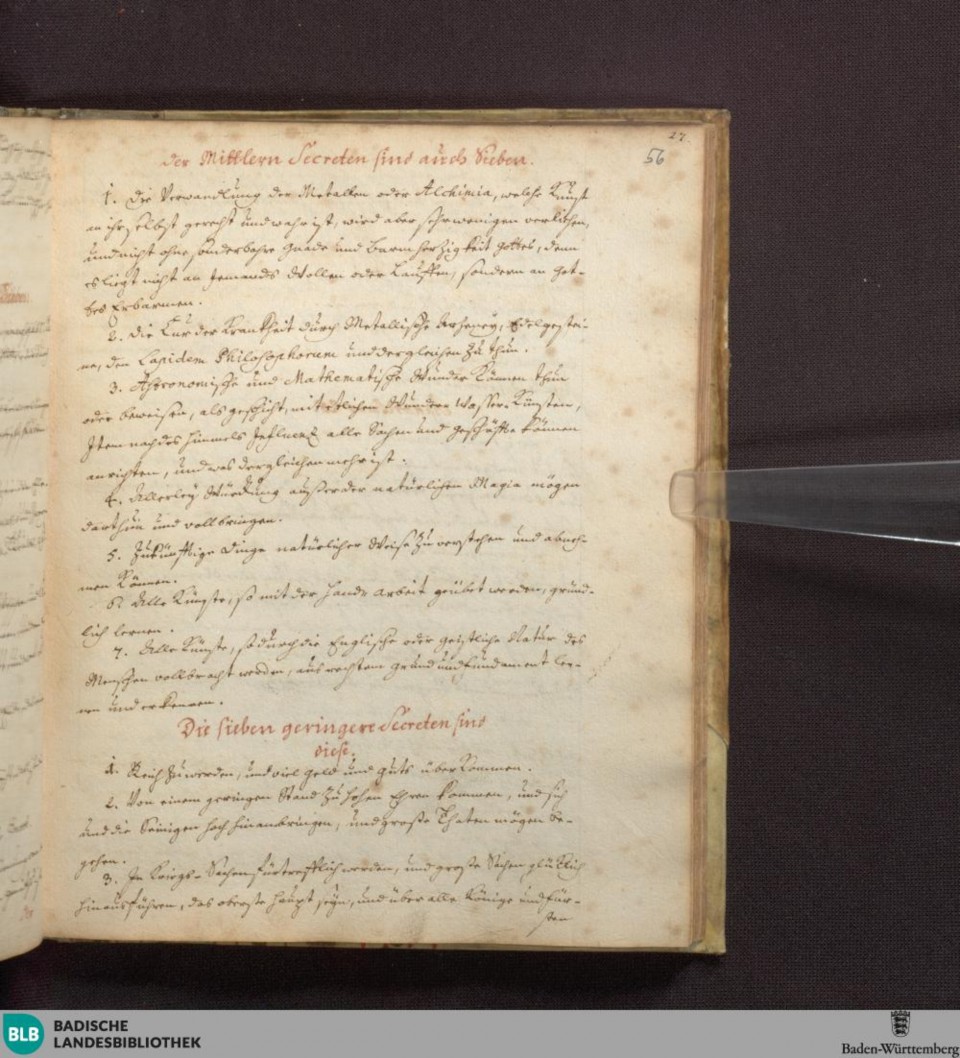 27.
56
der Mittlern Secreten sind auch Sieben.
1. Die Verwandlung der Metallen oder Alchimia, welche Kunst
an ihr selbst gerecht und wahr ist, wird aber sehr wenigen verliehen,
und nicht ohne sonderbahre Gnade und Barmherzigkeit Gottes, denn
es liegt nicht an Jemands Wollen oder Lauffen, sondern an Got-
tes Erbarmen.
2. Die Cur der Kranckheit durch Metallische Artzney, Edelgestei-
ne, den Lapidem Philosophorum und dergleichen zu thun.
3. Astronomische und Mathematische Wunder können thun
oder beweisen, als geschicht, mit etlichen Wunder-Wasser-Künsten,
Item nach des Himmels Influentz alle Sachen und Geschäffte können
anrichten, und was dergleichen mehr ist.
4. Allerley Würckung ausser der natürlichen Magia mögen
darthun und vollbringen.
5. Zukünfftige Dinge natürlicher Weise zu verstehen und abneh-
men können.
6. Alle Künste, so mit der Hand-Arbeit geübet werden, gründ-
lich lernen.
7. Alle Künste, so durch die Englische oder geistliche Natur des
Menschen vollbracht werden, aus rechtem Grund und Fundament ler-
nen und erkennen.
Die sieben geringere Secreten sind
diese.
1. Reich zu werden, und viel Geld und Guts überkommen.
2. Von einem geringen Stand zu hohen Ehren kommen, und sich
und die Seinigen hoch hinanbringen, und grosse Thaten mögen be-
gehen.
3. In Kriegs-Sachen fürtrefflich werden, und grosse Sachen glücklich
hinausführen, das oberste Haupt seyn, und über alle Könige und Für-
sten
BLB
BADISCHE
LANDESBIBLIOTHEK
Baden-Württemberg